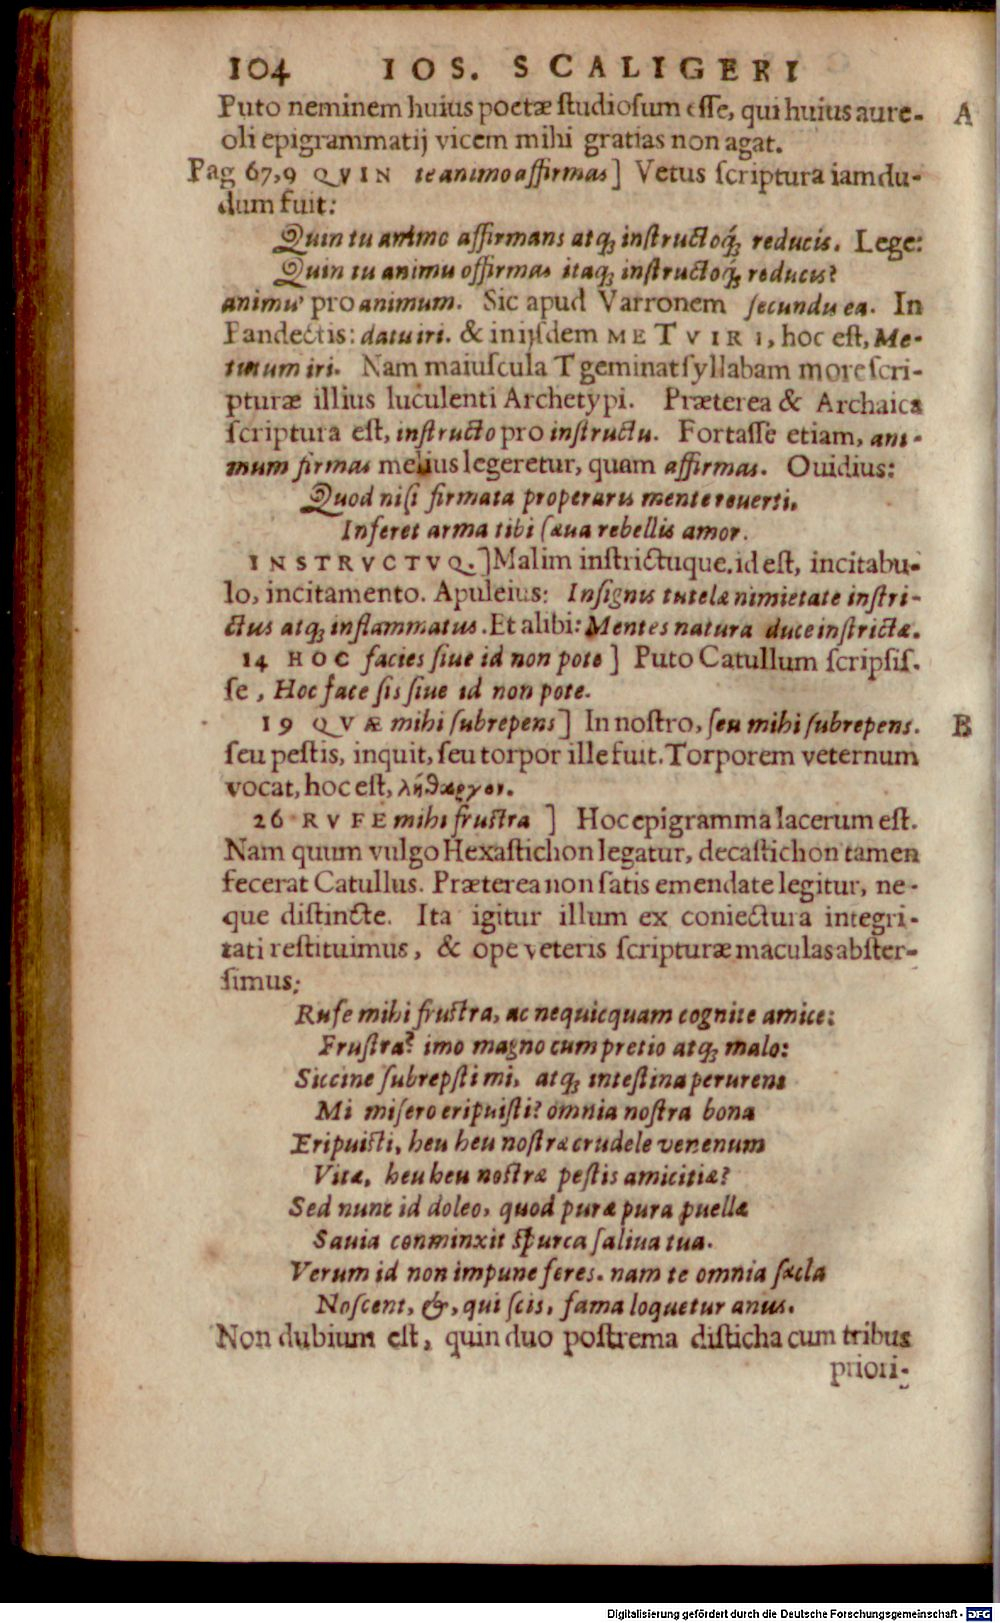 104 IOS. SCALIGERI
Puto neminem huius poetæ ſtudioſum eſſe, qui huius aure- A
oli epigrammatij vicem mihi gratias non agat.
Pag 67,9 QVIN te animo affirmas] Vetus ſcriptura iamdu-
dum fuit:
Quin tu animo affirmans atq; inſtructoq́; reducis. Lege:
Quin tu animu offirmas itaq; inſtructoq́; reducis?
animu' pro animum. Sic apud Varronem ſecundu ea. In
Pandectis: datu iri. & inijſdem METVIRI, hoc eſt, Me-
titum iri. Nam maiuſcula T geminat ſyllabam more ſcri-
pturæ illius luculenti Archetypi. Præterea & Archaica
ſcriptura eſt, inſtructo pro inſtructu. Fortaſſe etiam, ani-
mum firmas melius legeretur, quam affirmas. Ouidius:
Quod niſi firmata properaris mente reuerti,
Inferet arma tibi ſæua rebellis amor.
INSTRVCTVQ.] Malim inſtrictuque. id eſt, incitabu-
lo, incitamento. Apuleius: Inſignis tutelæ nimietate inſtri-
ctus atq; inflammatus. Et alibi: Mentes natura duce inſtrictæ.
14 HOC facies ſiue id non pote] Puto Catullum ſcripſiſ-
ſe, Hoc face ſis ſiue id non pote.
19 QVÆ mihi ſubrepens] In noſtro, ſeu mihi ſubrepens. B
ſeu peſtis, inquit, ſeu torpor ille fuit. Torporem veternum
vocat, hoc eſt, λήθαργον.
26 RVFE mihi fruſtra ] Hoc epigramma lacerum eſt.
Nam quum vulgo Hexaſtichon legatur, decaſtichon tamen
fecerat Catullus. Præterea non ſatis emendate legitur, ne-
que diſtincte. Ita igitur illum ex coniectura integri-
tati reſtituimus, & ope veteris ſcripturæ maculas abſter-
ſimus:
Rufe mihi fruſtra, ac nequicquam cognite amice:
Fruſtra? imo magno cum pretio atq; malo:
Siccine ſubrepſti mi, atq; inteſtina perurens
Mi miſero eripuiſti? omnia noſtra bona
Eripuiſti, heu heu noſtræ crudele venenum
Vitæ, heu heu noſtræ peſtis amicitiæ?
Sed nunc id doleo, quod puræ pura puellæ
Sauia conminxit ſpurca ſaliua tua.
Verum id non impune feres. nam te omnia ſæcla
Noſcent, &, qui ſcis, fama loquetur anus.
Non dubium eſt, quin duo poſtrema diſticha cum tribus
priori-
Digitalisierung gefördert durch die Deutsche Forschungsgemeinschaft - DFG